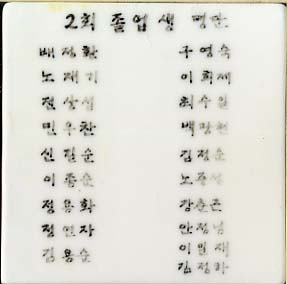 2회 졸업생 명단
배정환
노재기
전상섭
민우찬
신길순
이종순
정용화
정연자
김용순
구영숙
이희제
최수일
백광현
김정순
노종성
강춘근
안정님
이인재
김정아